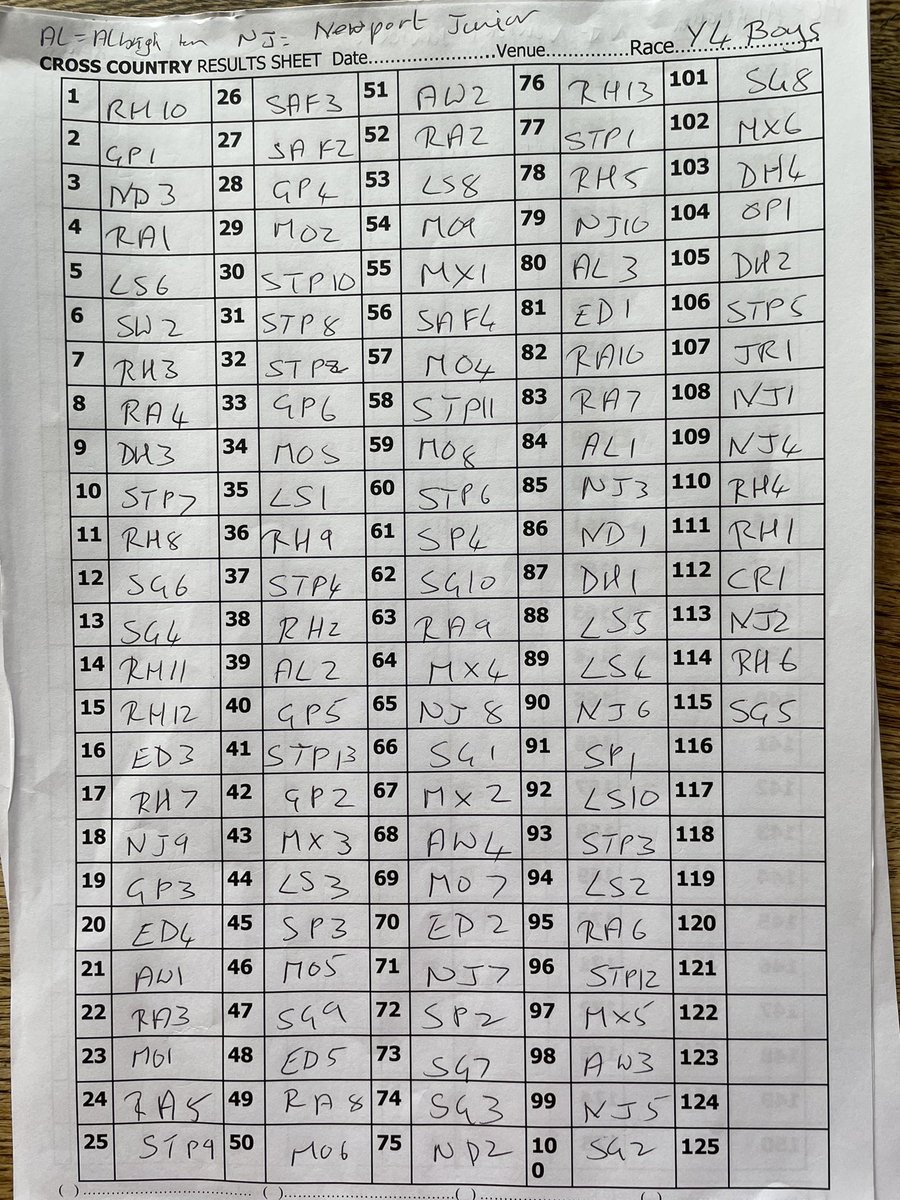 AL = Albrigh ton NJ = Newport Junior
CROSS COUNTRY RESULTS SHEET Date.......................Venue...............Race...Y4 Boys
1 RH10 26 SAF3 51 AW2 76 RH13 101 SG8
2 GP1 27 SAF2 52 RA2 77 STP1 102 MX6
3 ND3 28 GP4 53 LS8 78 RH5 103 DH4
4 RA1 29 MO2 54 MO9 79 NJ10 104 OP1
5 LS6 30 STP10 55 MX1 80 AL3 105 DH2
6 SW2 31 STP8 56 SAF4 81 ED1 106 STP5
7 RH3 32 STP2 57 MO4 82 RA10 107 JR1
8 RA4 33 GP6 58 STP11 83 RA7 108 NJ1
9 DH3 34 MO5 59 MO8 84 AL1 109 NJ4
10 STP7 35 LS1 60 STP6 85 NJ3 110 RH4
11 RH8 36 RH9 61 SP4 86 ND1 111 RH1
12 SG6 37 STP4 62 SG10 87 DH1 112 CR1
13 SG4 38 RH2 63 RA9 88 LS5 113 NJ2
14 RH11 39 AL2 64 MX4 89 LS4 114 RH6
15 RH12 40 GP5 65 NJ8 90 NJ6 115 SG5
16 ED3 41 STP13 66 SG1 91 SP1 116
17 RH7 42 GP2 67 MX2 92 LS10 117
18 NJ9 43 MX3 68 AW4 93 STP3 118
19 GP3 44 LS3 69 MO7 94 LS2 119
20 ED4 45 SP3 70 ED2 95 RA6 120
21 AW1 46 MO5 71 NJ7 96 STP12 121
22 RA3 47 SG9 72 SP2 97 MX5 122
23 MO1 48 ED5 73 SG7 98 AW3 123
24 RA5 49 RA8 74 SG3 99 NJ5 124
25 STP9 50 MO6 75 ND2 100 SG2 125
( )................................ ( )................................ ( )................................ ( )